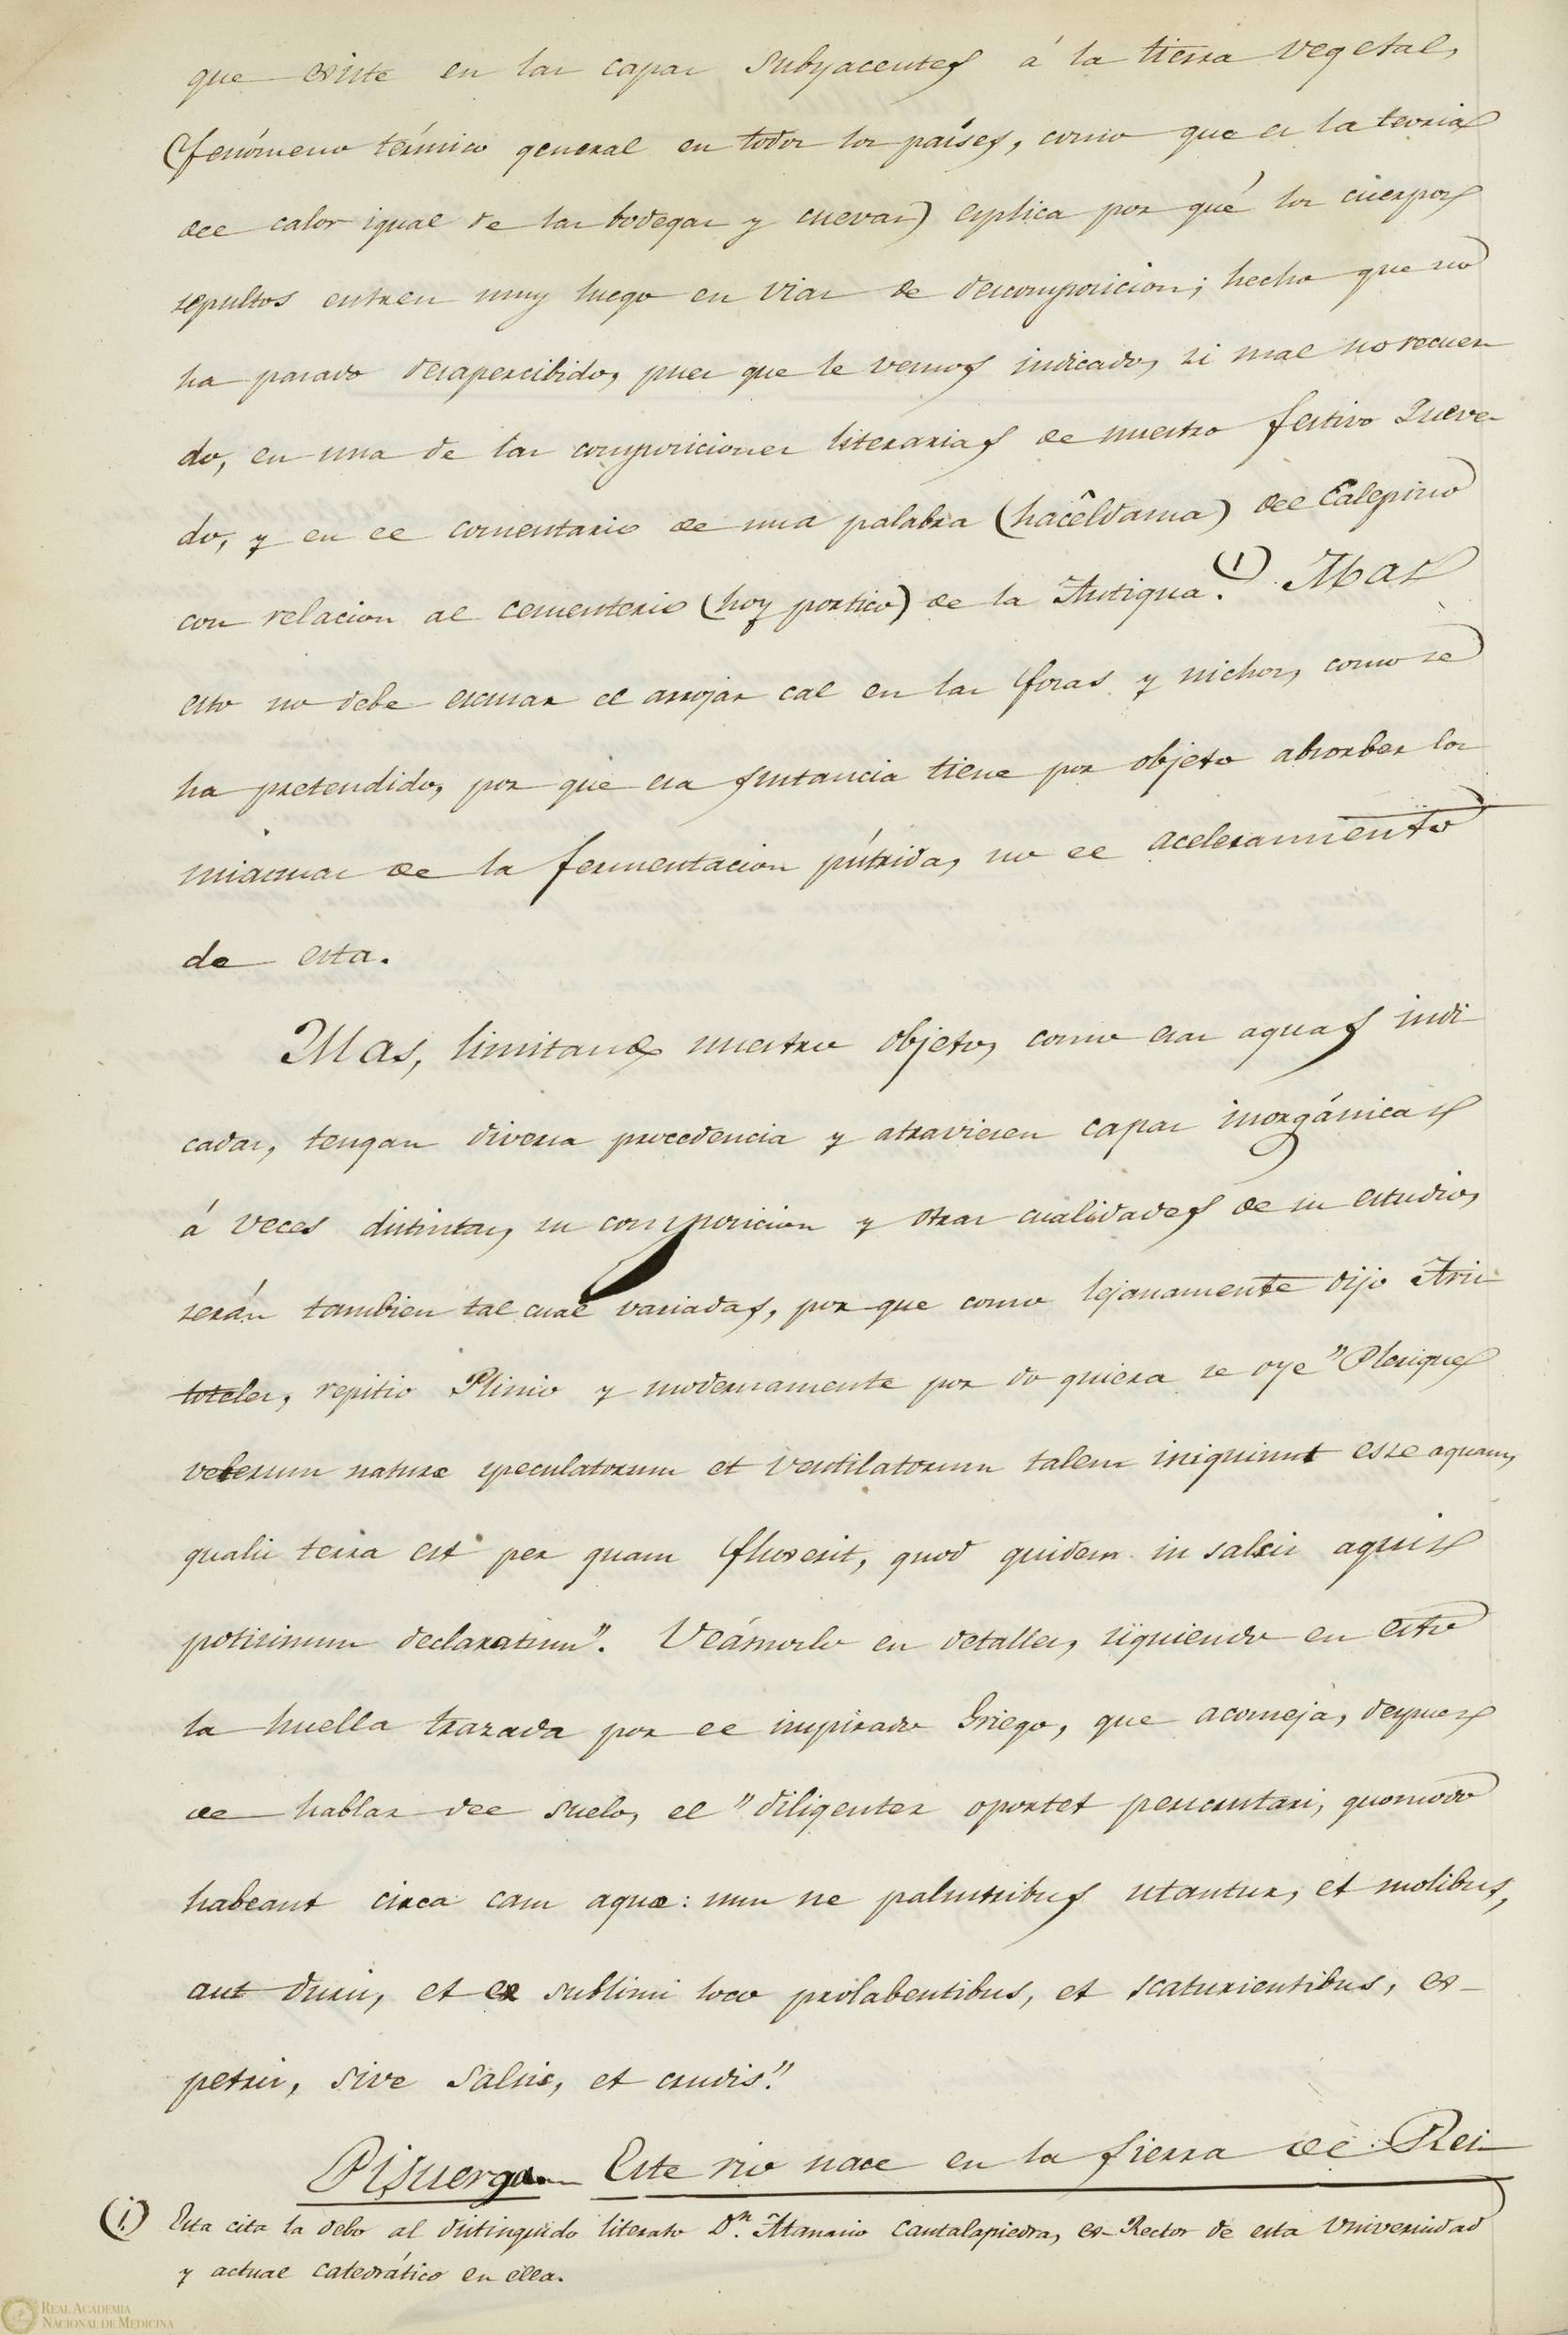 que existe en las capas subyacentes á la tierra vegetal,
(fenómeno térmico general en todos los países, como que es la teoria
del calor igual de las bodegas y cuevas) esplica por qué los cuerpos
sepultos entren muy luego en vias de descomposicion; hecho que no
ha pasado desapercibido, pues que le vemos indicado, si mal no recuer
do, en una de las composiciones literarias de nuestro festivo Queve-
do, y en el comentario de una palabra (hacêldama) del Calepino
con relacion al cementerio (hoy portico) de la Antigua. (1) Mas
esto no debe escusar el arrojar cal en las fosas y nichos, como se
ha pretendido, por que esa sustancia tiene por objeto absorber los
miasmas de la fermentacion pútrida, no el aceleramiento
de esta.
Mas, limitando nuestro objeto, como esas aguas indi
cadas, tengan diversa procedencia y atraviesen capas inorgánicas
á veces distintas, su composicion y otras cualidades de su estudio,
serán tambien tal cual variadas, por que como lejanamente dijo Aris
toteles, repitio Plinio y modernamente por do quiera se oye "Plerique
veterum nature speculatorum et ventilatorum talem iniquiunt esse aquam,
qualis terra est per quam fluxerit, quod quidem in salsis aquis
potisimum declaratum". Veámoslo en detalles, siguiendo en esto
la huella trazada por el inspirado Griego, que aconseja, despues
de hablar del suelo, el "diligenter oportet perscrutari, quomodo
habeant circa eam aquæ: num ne palustribus utantur, et molibus,
aut duris, et ex sublimi loco prolabentibus, et scaturientibus, ex-
petris, sive salsis, et crudis."
Pisuerga Este rio nace en la sierra de Rei-
(1.) Esta cita la debo al distinguido literato Dn. Atanasio Cantalapiedra, ex-Rector de esta Universidad
y actual catedrático en ella.
REAL ACADEMIA
NACIONAL DE MEDICINA